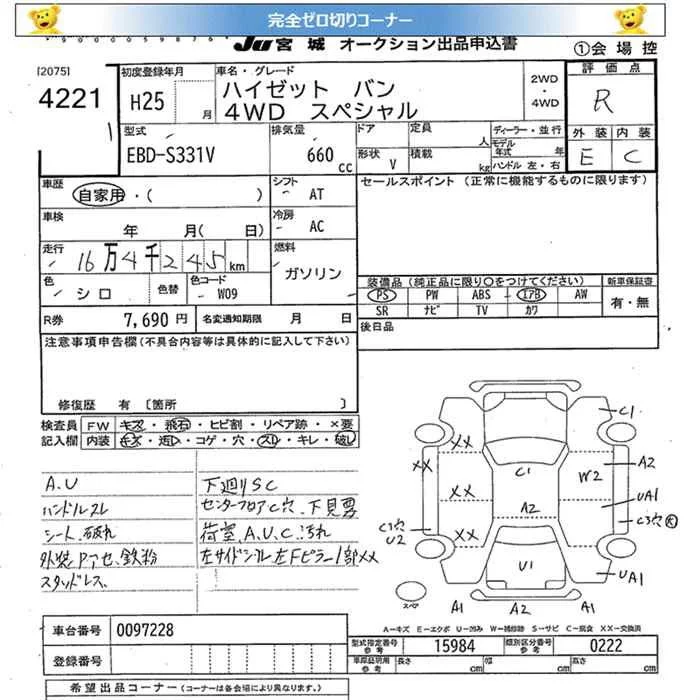 完全ゼロ切りコーナー
JU 宮城 オークション出品申込書
①会場控
[2075]
4221
初度登録年月
H25 月
車名・グレード
ハイゼット バン
4WD スペシャル
2WD
・
4WD
評価点
R
外装 内装
E C
型式
EBD-S331V
排気量
660 cc
ドア
形状 V
定員 人
積載 kg
ディーラー・並行
モデル年式 年
ハンドル 左・右
車歴
自家用・( )
シフト
AT
セールスポイント (正常に機能するものに限ります)
車検
年 月( 日)
冷房
AC
走行
16万4千245km
燃料
ガソリン
色
シロ
色替
色コード
W09
装備品(純正品に限り〇をつけてください)
新車保証書
PS PW ABS エアB AW
SR ナビ TV カワ
有・無
R券
7,690円
名変通知期限 月 日
後日品
注意事項申告欄(不具合内容等は具体的に記入して下さい)
修復歴 有 [箇所 ]
検査員
記入欄
FW キズ・飛石・ヒビ割・リペア跡・×要
内装 キズ・汚レ・コゲ・穴・スレ・キレ・破レ
A.U
ハンドルスレ
シート破れ
外装Pアセ、鉄粉
スタッドレス
下廻りSC
センターフロアC穴、下見要
荷室、A.U.C.汚れ
左サイドシル左Fピラー1部××
C1
××
××
××
××
C1
W2
A2
UA1
A2
C1穴
U2
C3穴
U1
UA1
スペア
A1 A2 A1
A-キズ E-エクボ U-凹み W-補修跡 S-サビ C-腐食 XX-交換済
車台番号 0097228
型式指定番号
参考
15984
類別区分番号
参考
0222
登録番号
車庫証明用
参考
長さ cm 幅 cm 高さ cm
希望出品コーナー(コーナーは各会場により異なります。)